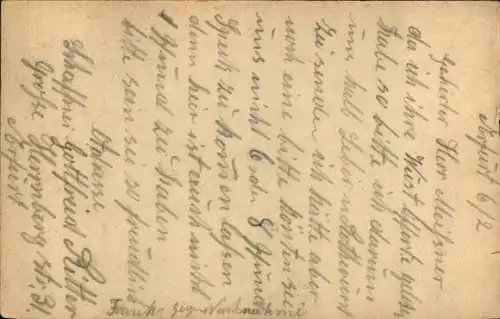 Erfurt 6/2
Geehrter Herr Meißner
da ich ihre Wurst Offerte gelesen
habe so bitte ich darum
uns halb Leber u Rothwurst
zu senden ich hätte aber
noch eine bitte könten sie
uns nicht 6 oder 8 Pfund
Speck zu kommen lassen
denn hier ist auch nicht
1 Pfund zu haben
bitte sein sie so freundlich
Adresse
Schaffner Gottfried Ritter
Große Herrnberg str. 31
Erfurt
Franko gegen Nachnahme